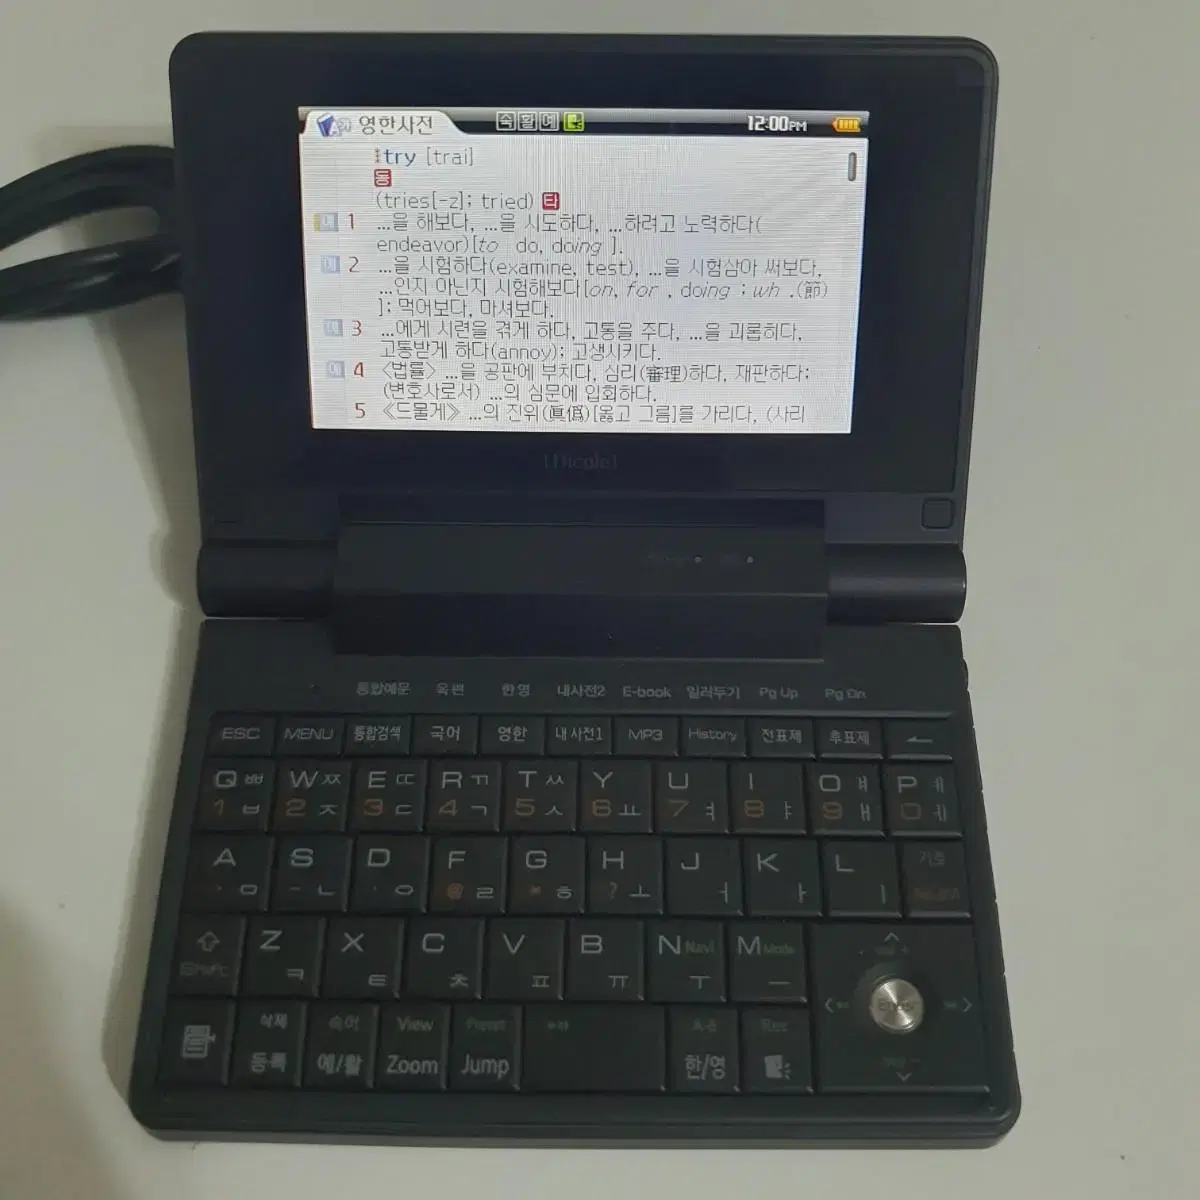 영한사전 숙 활 예 12:00PM
try [trai]
동
(tries[-z]; tried) 타
예 1 ...을 해보다, ...을 시도하다, ...하려고 노력하다(
endeavor)[to do, doing ].
예 2 ...을 시험하다(examine, test), ...을 시험삼아 써보다,
...인지 아닌지 시험해보다[on, for , doing ; wh .(節)
]; 먹어보다, 마셔보다.
예 3 ...에게 시련을 겪게 하다, 고통을 주다, ...을 괴롭히다,
고통받게 하다(annoy); 고생시키다.
예 4 〈법률〉 ...을 공판에 부치다, 심리(審理)하다, 재판하다;
(변호사로서) ...의 심문에 입회하다.
5 《드물게》 ...의 진위(眞僞)[옳고 그름]를 가리다, (사리
[Dicple]
통합예문 옥편 한영 내사전2 E-book 일러두기 Pg Up Pg Dn
ESC MENU 통합검색 국어 영한 내사전1 MP3 History 전표제 후표제
Q ㅃ W ㅉ E ㄸ R ㄲ T ㅆ Y U I O ㅒ P ㅖ
1 ㅂ 2 ㅈ 3 ㄷ 4 ㄱ 5 ㅅ 6 ㅛ 7 ㅕ 8 ㅑ 9 ㅐ 0 ㅔ
A S D F G H J K L 기호
ㅁ - ㄴ ㅇ @ ㄹ * ㅎ ? ㅗ ㅓ ㅏ ㅣ
Z X C V B N Navi M Mode
Shift ㅋ ㅌ ㅊ ㅍ ㅠ ㅜ ㅡ
삭제 숙어 View Preset Rec
등록 예/활 Zoom Jump 한/영